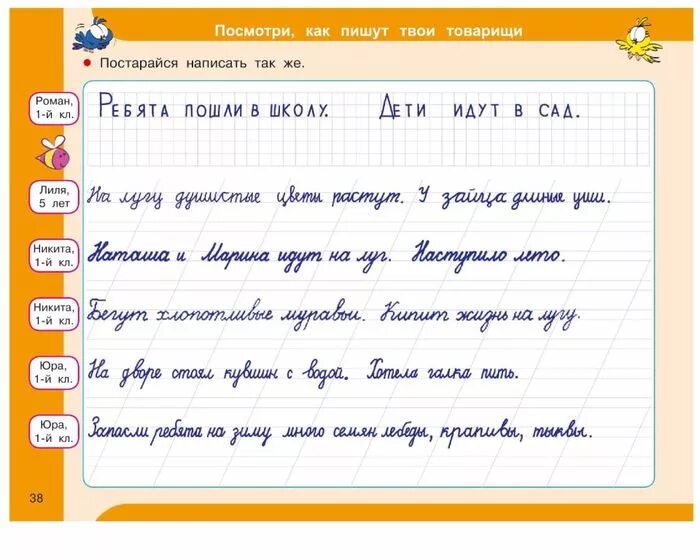 Посмотри, как пишут твои товарищи
• Постарайся написать так же.
Роман,
1-й кл.
Ребята пошли в школу. Дети идут в сад.
Лиля,
5 лет
На лугу душистые цветы растут. У зайца длиные уши.
Никита,
1-й кл.
Наташа и Марина идут на луг. Наступило лето.
Никита,
1-й кл.
Бегут хлопотливые муравьи. Кипит жизнь на лугу.
Юра,
1-й кл.
На дворе стоял кувшин с водой. Хотела галка пить.
Юра,
1-й кл.
Запасли ребята на зиму много семян лебеды, крапивы, тыквы.
38